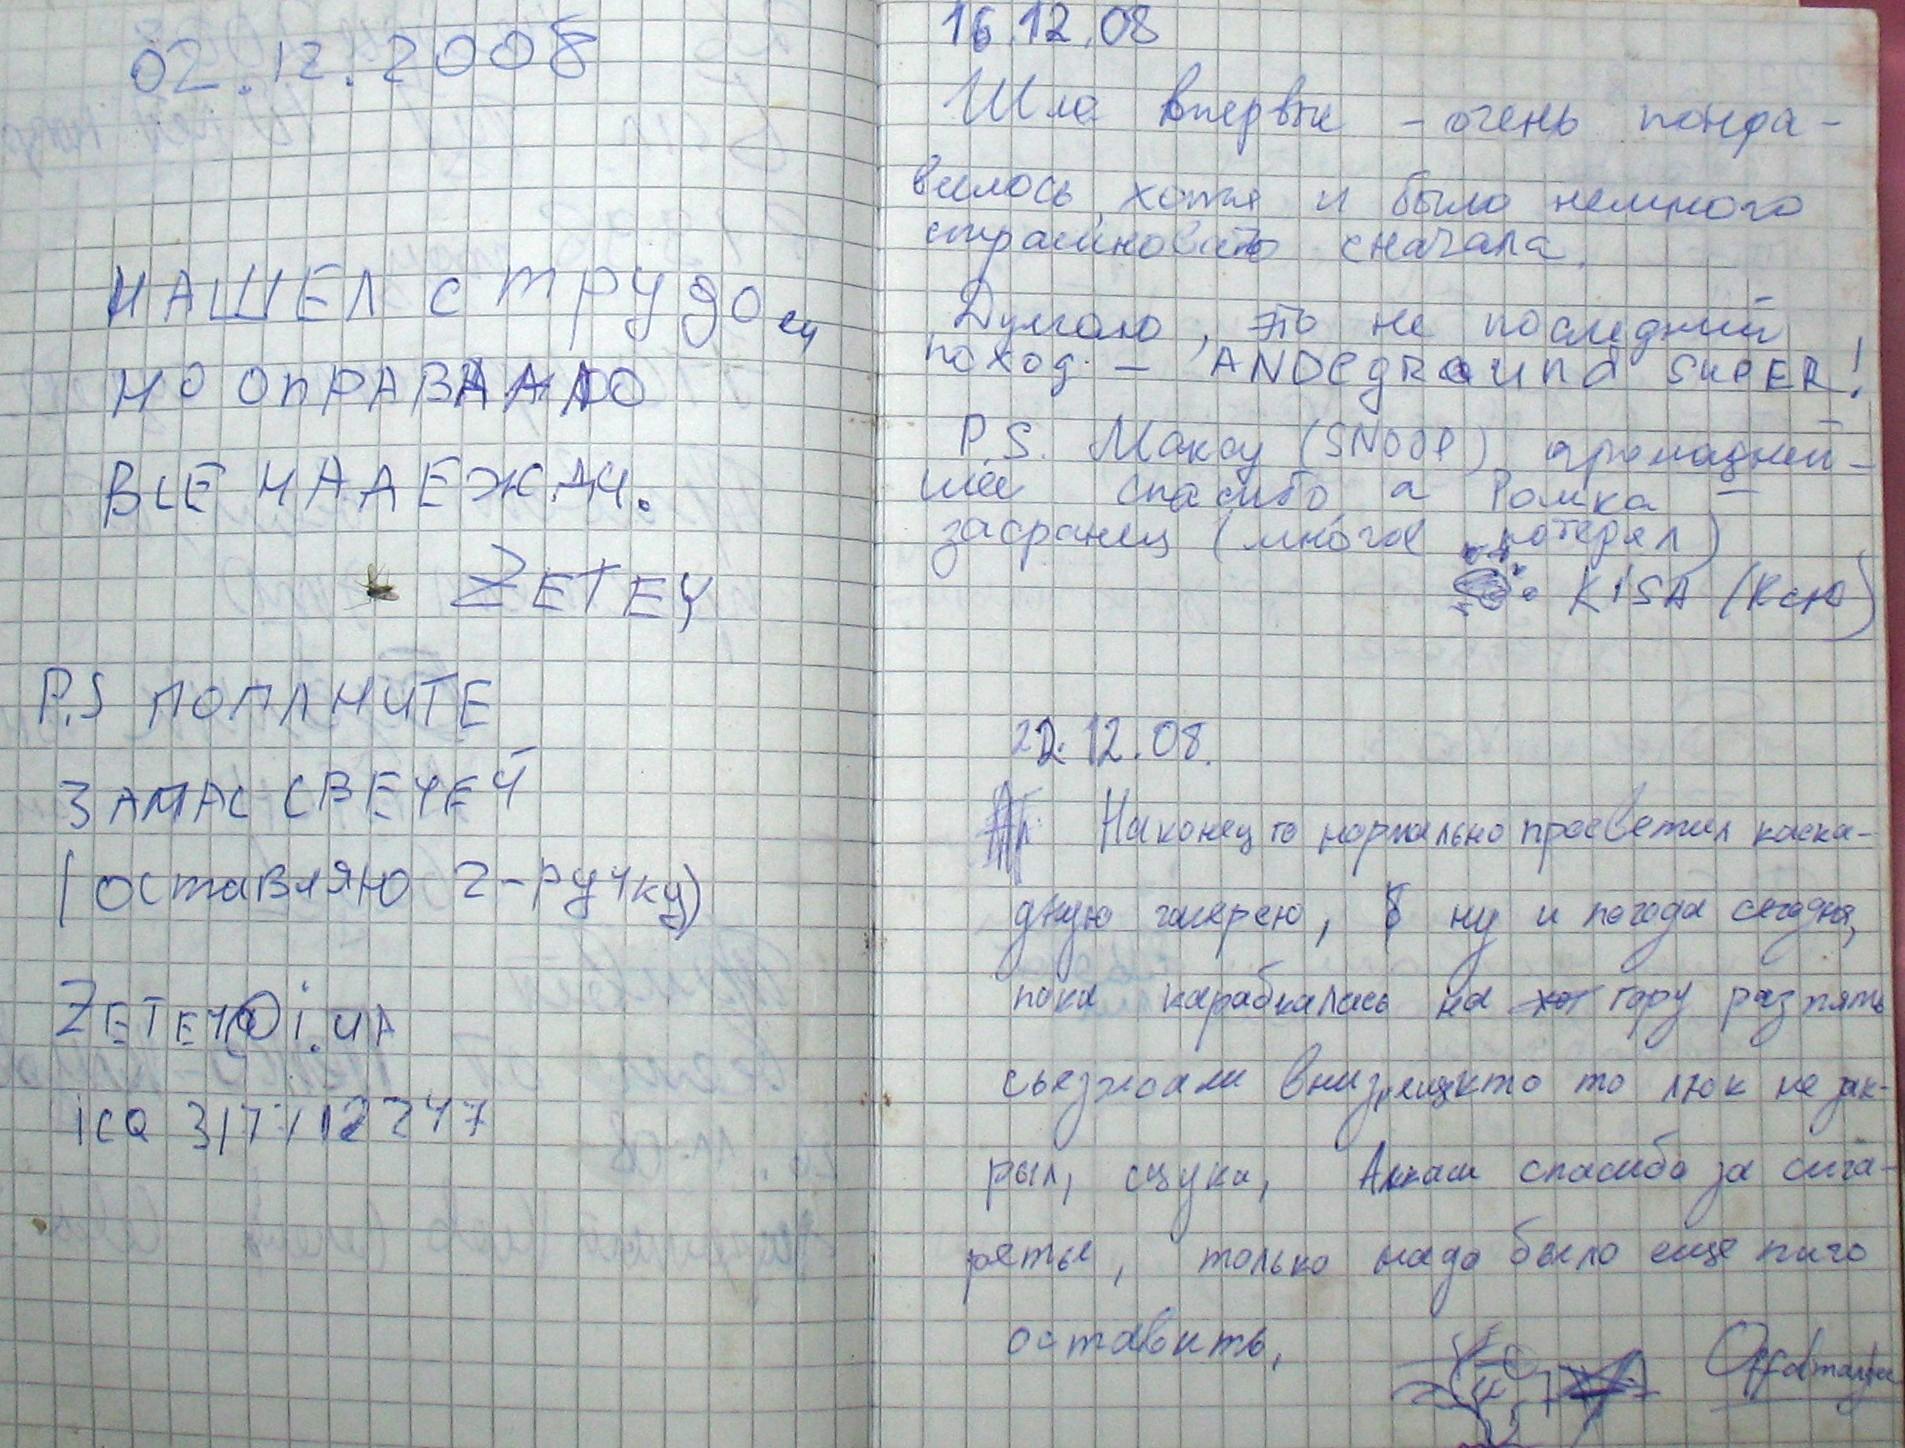 02.12.2008
НАШЕЛ С ТРУДОМ
НО ОПРАВДАЛО
ВСЕ НАДЕЖДИ.
ZETEY
P.S ПОПЛНИТЕ
ЗАПАС СВЕЧЕЙ
(ОСТАВЛЯЮ 2-РУЧКУ)
i.UA
ICQ
16.12.08
Шла впервые – очень понра-
вилось, хотя и было немного
страшновато сначала.
Думаю, это не последний
поход – ANDEGRAUND SUPER!
P.S. Максу (SNOOP) громадней-
шее спасибо, а Ромка –
засранец (многое потерял)
KISA (Ксю)
22.12.08.
Наконец то нормально просветил каска-
дную галерею, ну и погода сегодня,
пока карабкалась на гору раз пять
сьезжали вниз, кто то люк не зак-
рыл, сцука, Алкаш спасибо за сига-
реты, только надо было еще пиго
оставить,